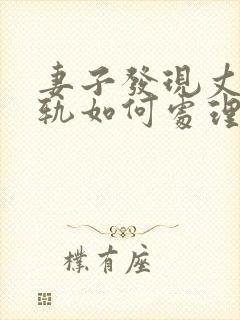 妻子發現丈
軌如何處理
樸有座